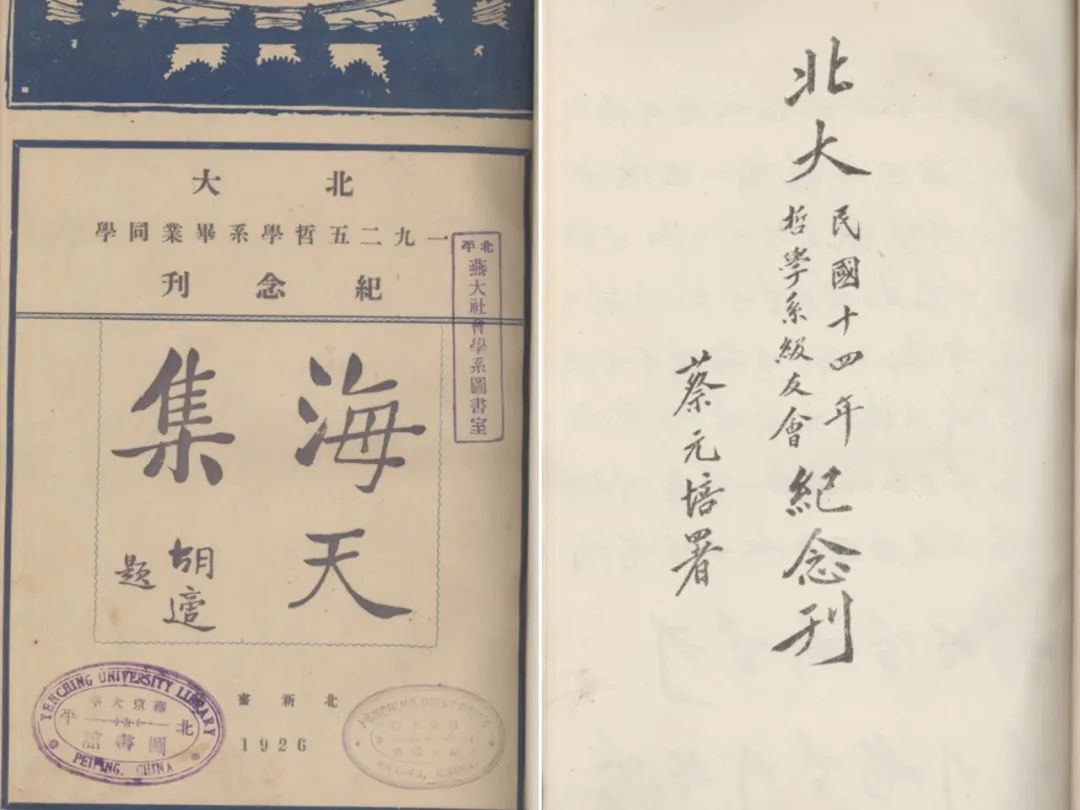 北大
一九二五哲學系畢業同學
紀念刊
北平
燕大社會學系圖書室
海天
集
胡適
題
北新書
1926
YENCHING UNIVERSITY LIBRARY
燕京大學
北平
圖書館
PEIPING, CHINA
YENCHING UNIVERSITY
北大
民國十四年
哲學系級友會
紀念刊
蔡元培署